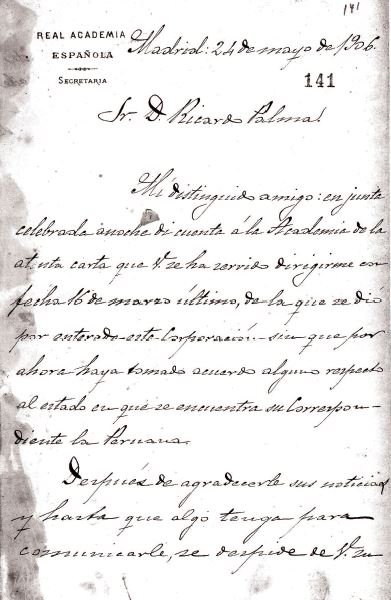 141
REAL ACADEMIA
ESPAÑOLA
SECRETARIA
Madrid: 24 de mayo de 1906.
141
Sr. D. Ricardo Palma.
Mi distinguido amigo: en junta
celebrada anoche di cuenta á la Academia de la
atenta carta que V. se ha servido dirigirme con
fecha 16 de marzo último, de la que se dió
por enterada esta Corporación sin que por
ahora haya tomado acuerdo alguno respecto
al estado en que se encuentra su Correspon-
diente la Peruana.
Después de agradecerle sus noticias
y hasta que algo tenga para
comunicarle, se despide de V. su